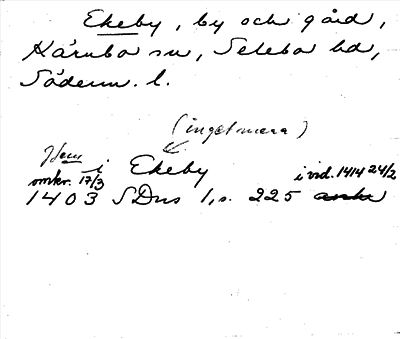 Ekeby, by och gård,
Kärnbo sn, Selebo hd,
Söderm. l.
(inget mera)
Hem i Ekeby
omkr. 17/3 i vid. 1414 24/2
1403 SDns 1, s. 225